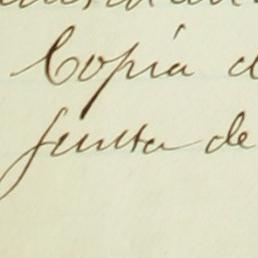 Copia d
junta de